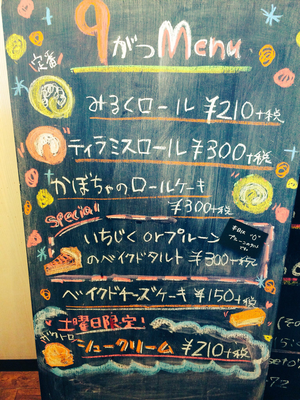 9がつMenu
定番
みるくロール ¥210+税
ティラミスロール ¥300+税
かぼちゃのロールケーキ
¥300+税
Special!!
いちじく orプルーン
のベイクドタルト ¥300+税
ベイクドチーズケーキ ¥150+税
土曜日限定!
シュークリーム ¥210+税